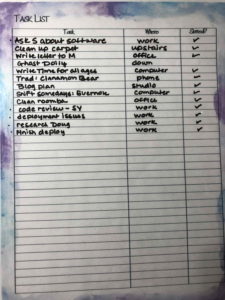 TASK LIST
Task Where Started?
Ask S about software work ✓
Clean up carpet upstairs ✓
Write letter to M office ✓
Ghast Dolly down
Write Time for all ages computer ✓
Tred: Cinnamon Bear phone ✓
Blog plan studio ✓
Shift somedays: Evernote computer ✓
Clean roomba office ✓
code review - SY work ✓
deployment issues work ✓
research Doug work ✓
Finish deploy work ✓